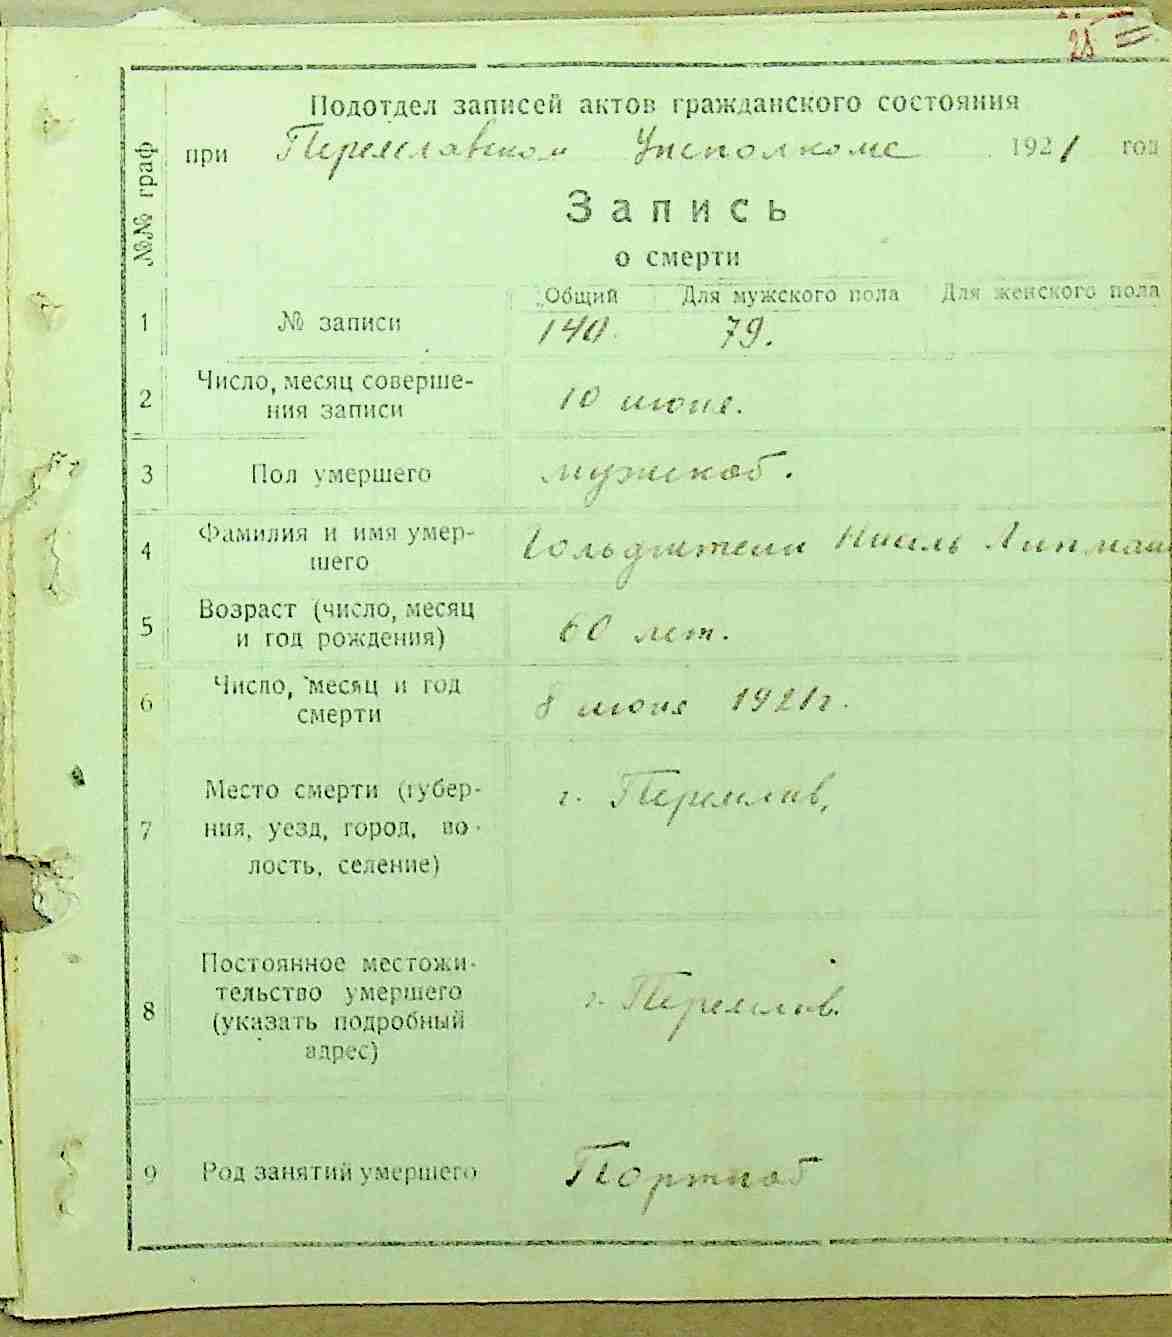 28
Подотдел записей актов гражданского состояния
при Переславском Уисполкоме 1921 год
№№ граф
Запись
о смерти
Общий Для мужского пола Для женского пола
1 № записи 140. 79.
2 Число, месяц соверше-
ния записи 10 июня.
3 Пол умершего мужской.
4 Фамилия и имя умер-
шего Гольдштейн
5 Возраст (число, месяц
и год рождения) 60 лет.
6 Число, месяц и год
смерти 8 июня 1921 г.
7 Место смерти (губер-
ния, уезд, город, во-
лость, селение) г. Переславль,
8 Постоянное местожи-
тельство умершего
(указать подробный
адрес) г. Переславль.
9 Род занятий умершего Портной